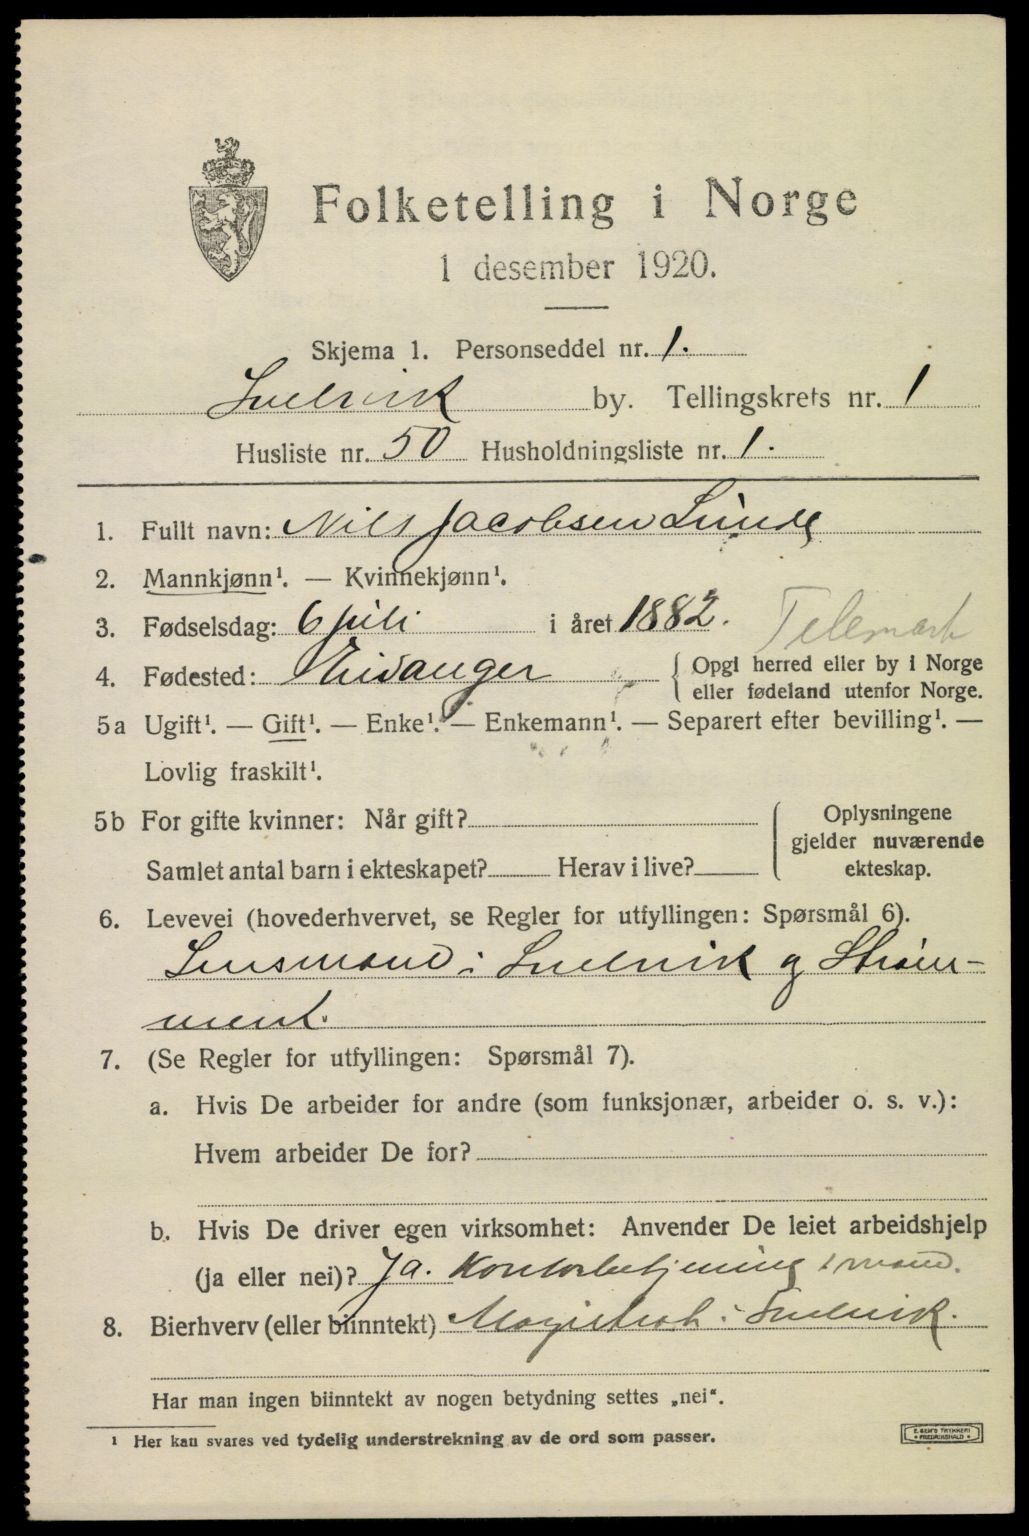 Folketelling i Norge
1 desember 1920.
Skjema 1. Personseddel nr. 1.
Svelvik by. Tellingskrets nr. 1
Husliste nr. 50 Husholdningsliste nr. 1.
1. Fullt navn: Nils Jacobsen Lunde
2. Mannkjønn¹. — Kvinnekjønn¹.
3. Fødselsdag: 6 juli i året 1882. Telemark
4. Fødested: Eidanger { Opgi herred eller by i Norge
eller fødeland utenfor Norge.
5a Ugift¹. — Gift¹. — Enke¹. — Enkemann¹. — Separert efter bevilling¹. —
Lovlig fraskilt¹.
5b For gifte kvinner: Når gift?
Samlet antal barn i ekteskapet? Herav i live?
Oplysningene
gjelder nuværende
ekteskap.
6. Levevei (hovederhvervet, se Regler for utfyllingen: Spørsmål 6).
Lensmand i Svelvik og Strøm-
ment.
7. (Se Regler for utfyllingen: Spørsmål 7).
a. Hvis De arbeider for andre (som funksjonær, arbeider o. s. v.):
Hvem arbeider De for?
b. Hvis De driver egen virksomhet: Anvender De leiet arbeidshjelp
(ja eller nei)? Ja. Kontorbetjening 1 mand.
8. Bierhverv (eller biinntekt) Magistrat i Svelvik.
Har man ingen biinntekt av nogen betydning settes „nei“.
¹ Her kan svares ved tydelig understrekning av de ord som passer.
E. SEM'S TRYKKERI
• FREDRIKSHALD •